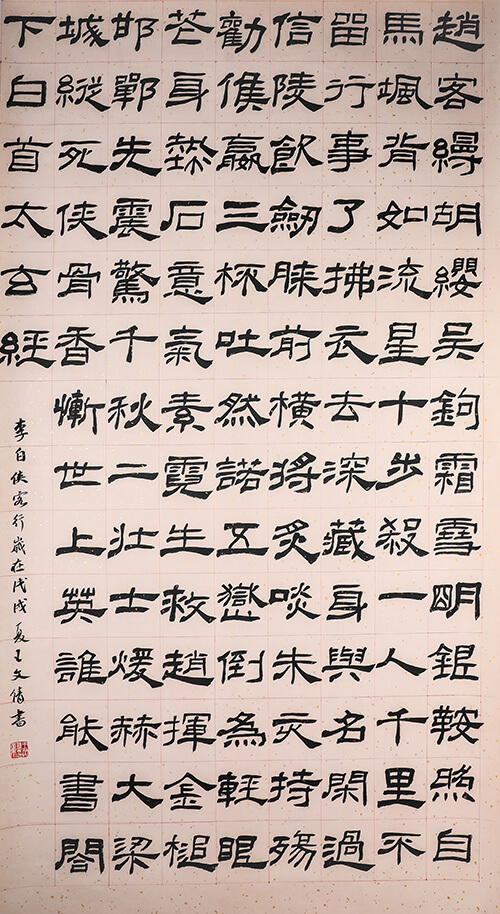 趙客縵胡纓吳鉤霜雪明銀鞍照白
馬颯沓如流星十步殺一人千里不
留行事了拂衣去深藏身與名閑過
信陵飲劒膝前橫將炙啖朱亥持觴
勸侯嬴三杯吐然諾五嶽倒為輕眼
花耳熱后意氣素霓生救趙揮金槌
邯鄲先震驚千秋二壯士烜赫大梁
城縱死俠骨香慚世上英誰能書閣
下白首太玄經
李白俠客行歲在戊戌夏王文倩書